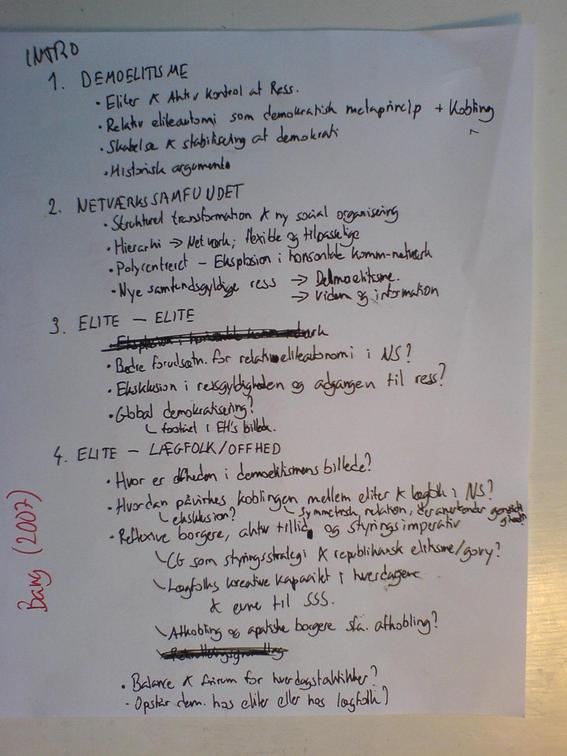 INTRO
1. DEMOELITISME
• Eliter & Aktiv kontrol af Ress.
• Relativ eliteautomi som demokratisk metaprincip + Kobling
• Skabelse & stabilisering af demokrati
• Historisk argument
2. NETVÆRKSSAMFUNDET
• Strukturel transformation & ny social organisering
• Hierarki → Netværk; flexible og tilpaselige
• Polycentreret – Eksplosion i horisontale komm-netværk
• Nye samfundsgyldige ress → Delmoelitisme.
→ viden og information
3. ELITE – ELITE
• Bedre forudsætn. for relativ eliteautonomi i NS?
• Eksklusion i ressgyldigheden og adgangen til ress?
• Global demokratisering?
i EH's billede.
4. ELITE – LÆGFOLK/OFFHED
• Hvor er offheden i demoelitismens billede?
• Hvordan påvirkes koblingen mellem eliter & lægfolk i NS?
eksklusion? symmetrisk, relation, der anerkender
• Reflexive borgere, aktiv tillid, og styringsimperativ
CG som styringsstrategi & republikansk elitisme/gov?
Lægfolks kreative kapacitet i hverdagene
& evne til SSS.
Afkobling og apatiske borgere sfa. afkobling?
• Balance & forum for hverdagstaktikker?
• Opstår dem. hos eliter eller hos lægfolk?
Bang (2007)